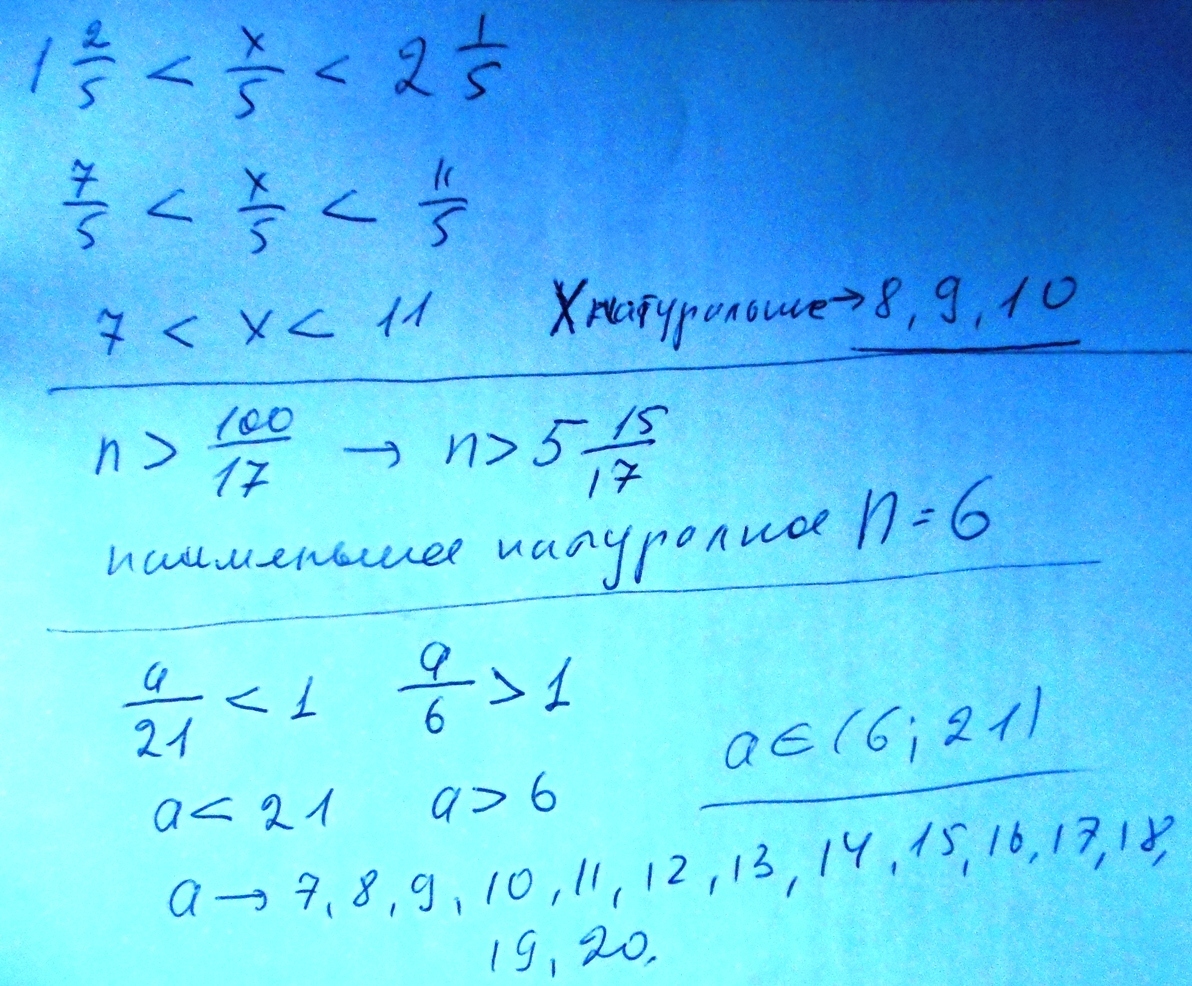 1 2/5 < x/5 < 2 1/5
7/5 < x/5 < 11/5
7 < x < 11 X натуральные → 8, 9, 10
n > 100/17 → n > 5 15/17
наименьшее натуралное n = 6
a/21 < 1 a/6 > 1
a < 21 a > 6 a ∈ (6; 21)
a → 7, 8, 9, 10, 11, 12, 13, 14, 15, 16, 17, 18,
19, 20.